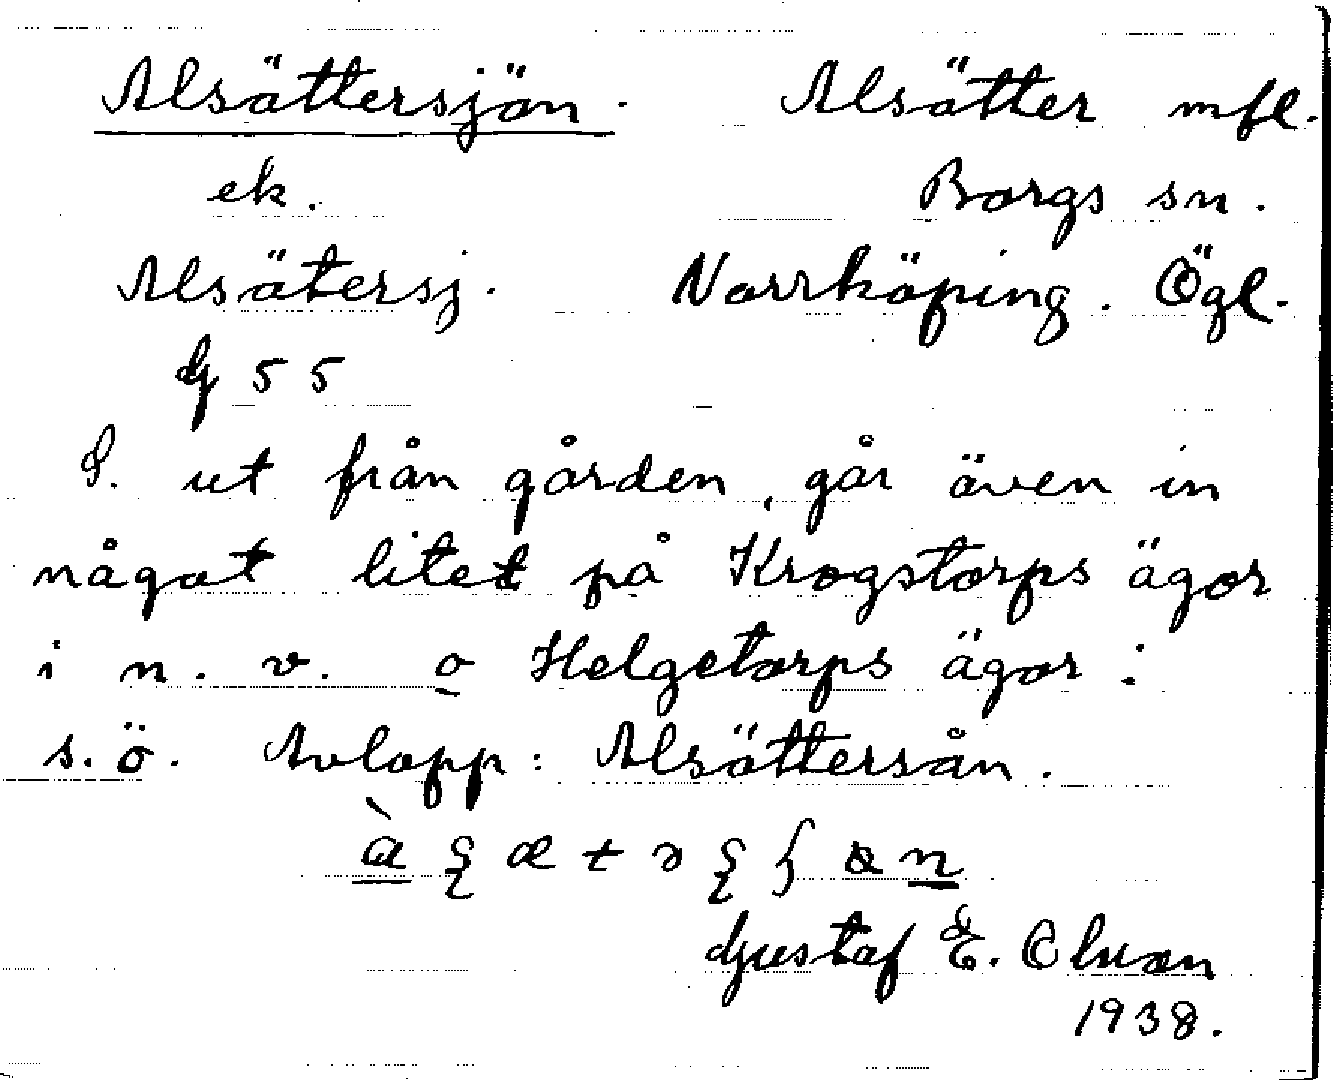 Alsättersjön. Alsätter mfl.
ek. Borgs sn.
Alsätersj. Norrköping. Ögl.
G 55
S. ut från gården, går även in
något litet på Krogstorps ägor
i n. v. o Helgetorps ägor i
s. ö. Avlopp: Alsättersån.
Gustaf E.
1938.